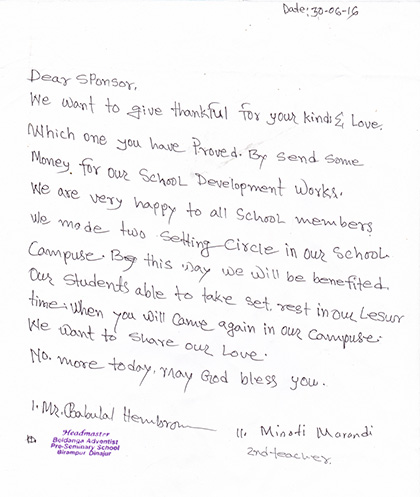 Date: 30-06-16
Dear Sponsor,
We want to give thankful for your kind & Love.
Which one you have Proved. By send some
Money. for our School Development Works.
We are very happy to all School members
We made two Setting Circle in our School
Campuse. By this way we will be benefited.
Our Students able to take set, rest in our Lesur
time. When you will Came again in our Campuse.
We want to share our Love.
No. more today. May God bless you.
1. Mr. Babulal Hembrom
Headmaster
Boldanga Adventist
Pre-Seminary School
Birampur Dinajur
11. Minoti Marandi
2nd teacher.